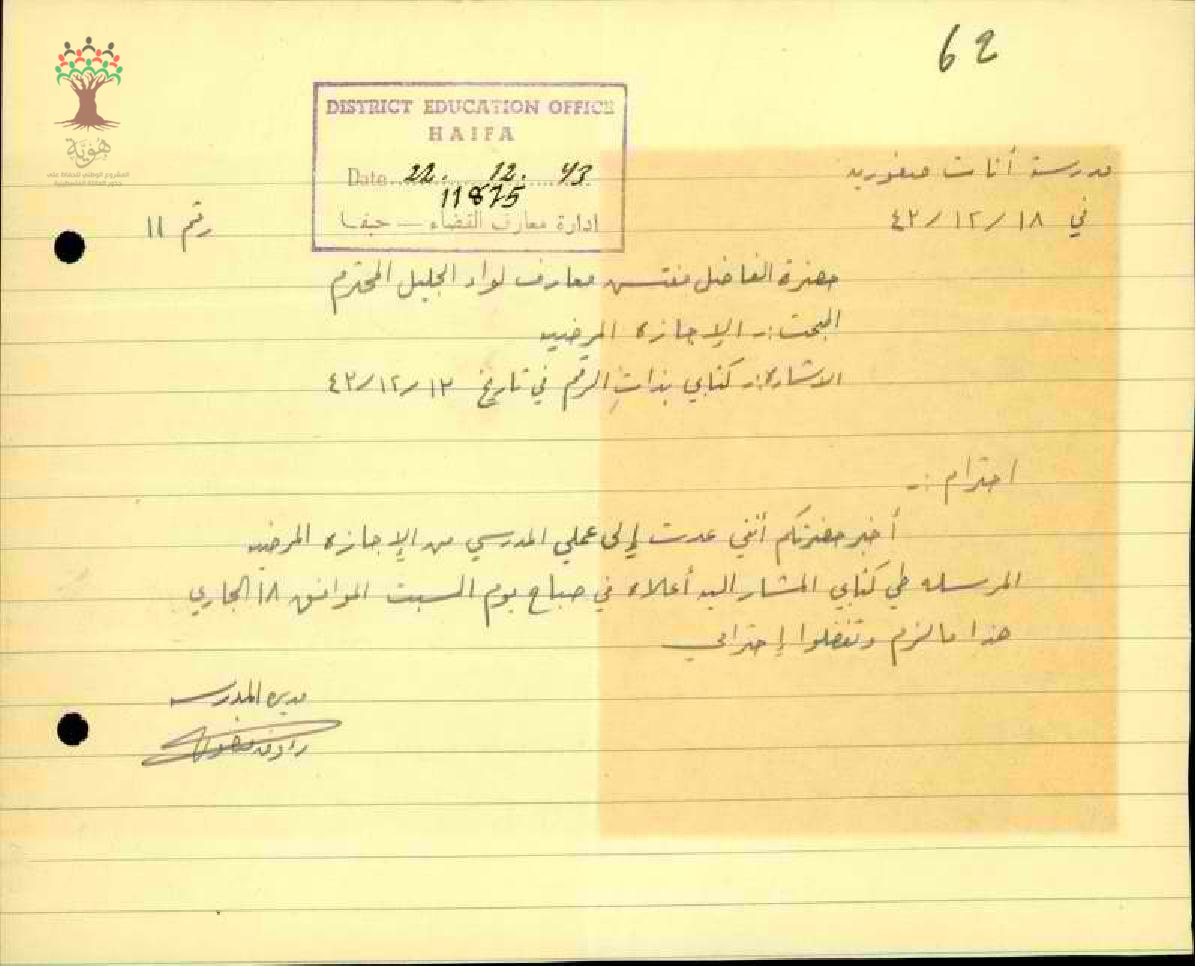 62
DISTRICT EDUCATION OFFICE
HAIFA
Date 22. 12. 43
11875
ادارة معارف القضاء — حيفا
هُويّة
المشروع الوطني للحفاظ على
جذور العائلة الفلسطينية
مدرسة أناث صفوريه
في ١٨/١٢/٤٣
رقم ١١
حضرة الفاضل مفتش معارف لواء الجليل المحترم
البحث :ـ الإجازه المرضيه
الاشاره :ـ كتابي بذاتِ الرقم في تاريخ ١٣/١٢/٤٣
احترام :ـ
أخبر حضرتكم أنني عدت إلى عملي المدرسي من الإجازه المرضيه
المرسله طي كتابي المشار اليه أعلاه في صباح يوم السبت الموافق ١٨ الجاري
هذا ما لزم وتفضلوا إحترامي
مديرة المدرسه